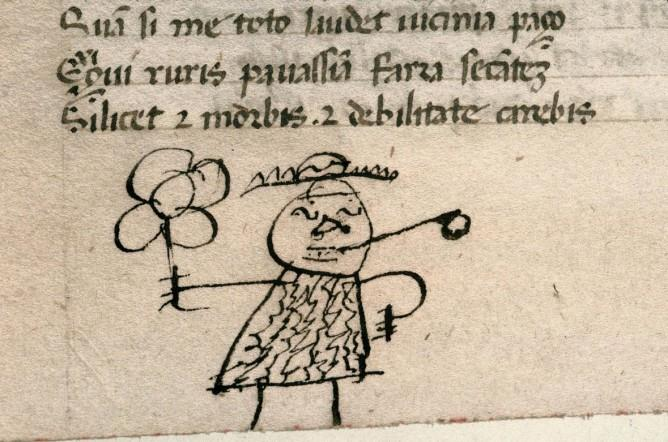 Quā si me toto laudet uicinia pago
Exigui ruris paucissīa farra secāteꝫ
Silicet ⁊ morbis . ⁊ debilitate carebis